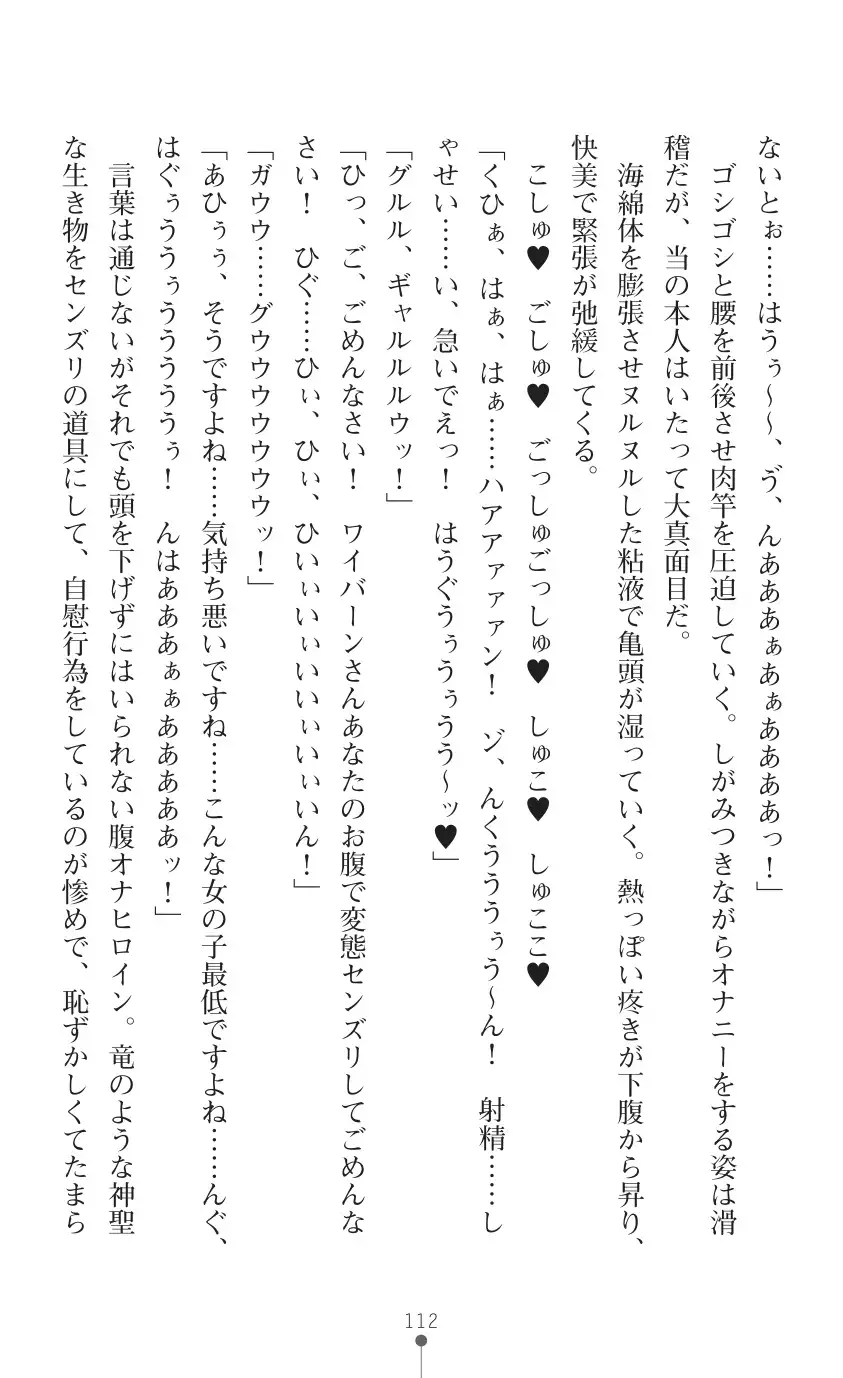 ないとぉ……はうぅ～～、ゔ、んあああぁあぁああああっ！」
　ゴシゴシと腰を前後させ肉竿を圧迫していく。しがみつきながらオナニーをする姿は滑
稽だが、当の本人はいたって大真面目だ。
　海綿体を膨張させヌルヌルした粘液で亀頭が湿っていく。熱っぽい疼きが下腹から昇り、
快美で緊張が弛緩してくる。
　こしゅ♥　ごしゅ♥　ごっしゅごっしゅ♥　しゅこ♥　しゅここ♥
「くひぁ、はぁ、はぁ……ハアアァァァン！　ゾ、んくうううぅう～ん！　射精……し
ゃせい……い、急いでえっ！　はうぐうぅうぅうう～ッ♥」
「グルル、ギャルルルウッ！」
「ひっ、ご、ごめんなさい！　ワイバーンさんあなたのお腹で変態センズリしてごめんな
さい！　ひぐ……ひぃ、ひぃ、ひいぃいぃいいぃいぃいん！」
「ガウウ……グウウウウウウウッ！」
「あひぅぅ、そうですよね……気持ち悪いですね……こんな女の子最低ですよね……んぐ、
はぐぅううぅうううううぅ！　んはあああぁぁああああああッ！」
　言葉は通じないがそれでも頭を下げずにはいられない腹オナヒロイン。竜のような神聖
な生き物をセンズリの道具にして、自慰行為をしているのが惨めで、恥ずかしくてたまら
112